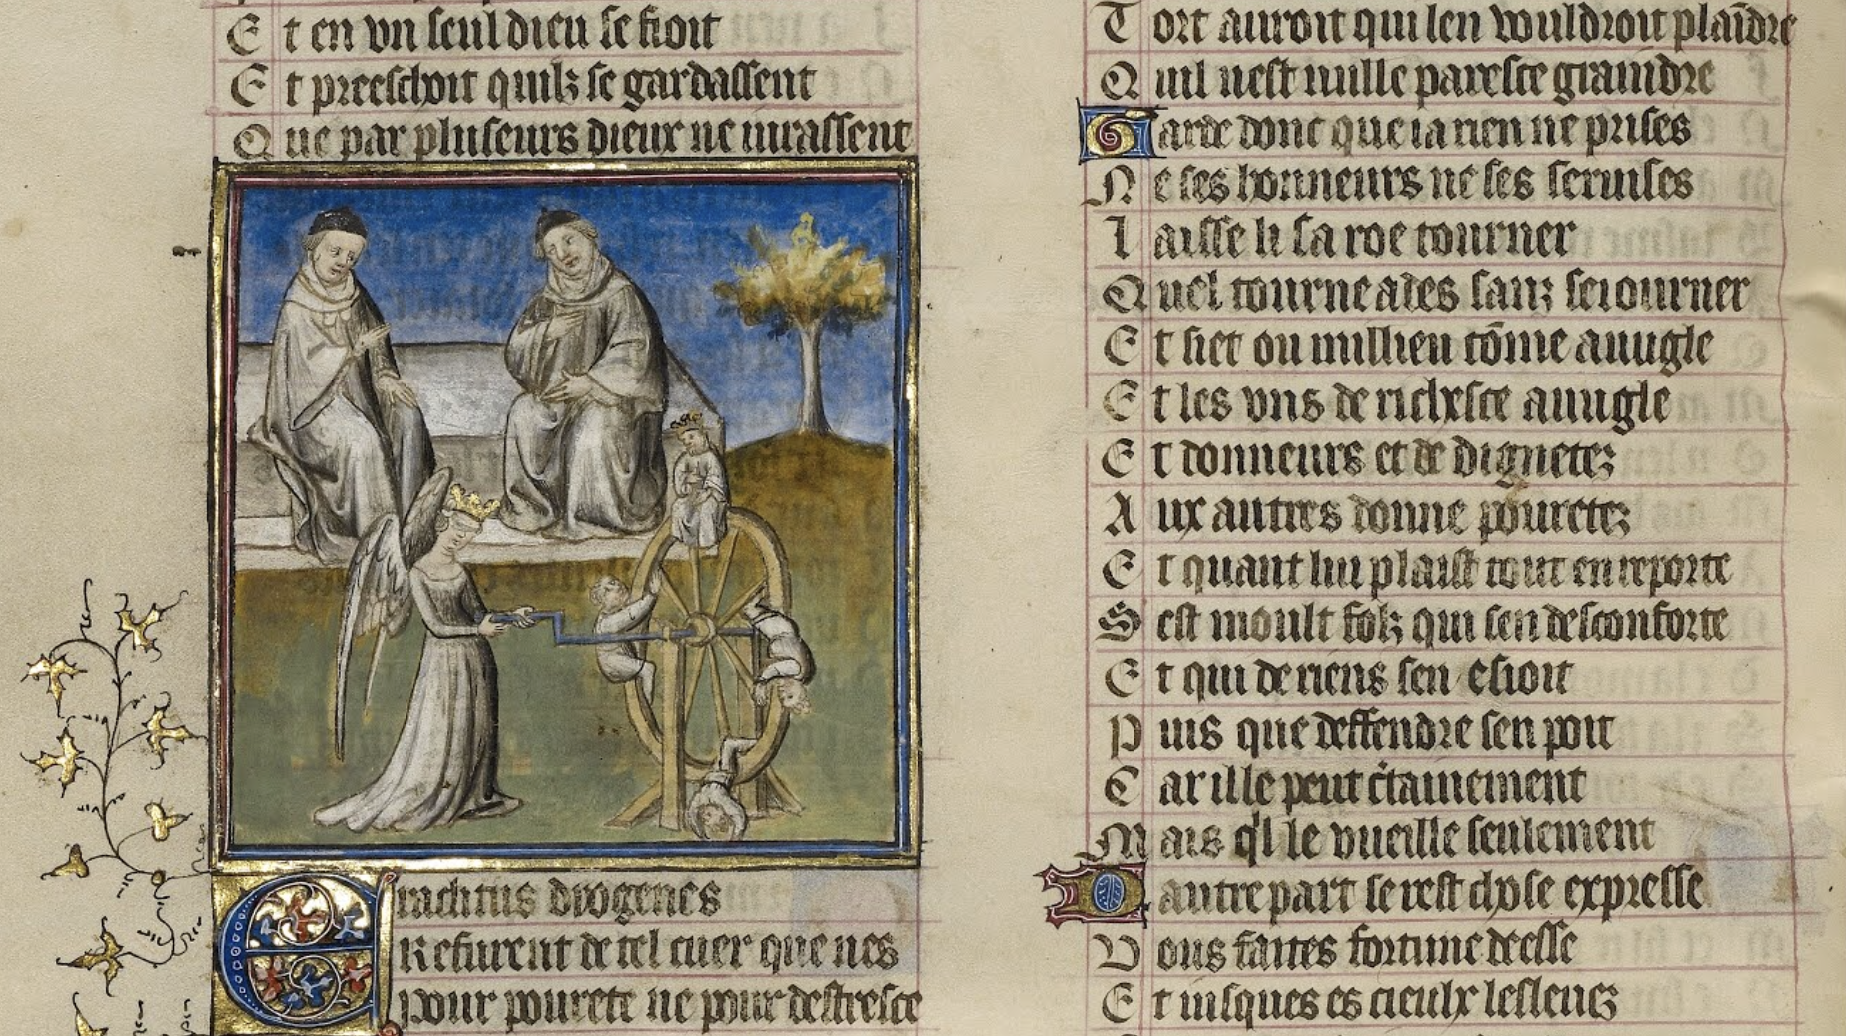 Et en vn seul dieu se fioit
Et preeschoit quilz se gardassent
Que par pluseurs dieux ne iurassent
Eraclitus dyogenes
Refurent de tel cuer que nes
pour pourete ne pour destresce
Tort auroit qui len vouldroit plaīdre
Quil nest nulle paresce graindre
Garde donc que ia rien ne prises
Ne ses honneurs ne ses seruises
Laisse li sa roe tourner
Quel tourne ades sanz seiourner
Et siet ou millieu cōme auugle
Et les vns de richesce auugle
Et donneurs et de dignetez
Aux autres donne pouretez
Et quant lui plaist tout en reporte
Sest moult folz qui sen desconforte
Et qui de riens sen esioit
Puis que deffendre sen poit
Car ille peut c̄tainement
Mais q̄l le vueille seulement
Dautre part se rest chose expresse
Vous faites fortune deesse
Et iusques es cieulx lesleuez